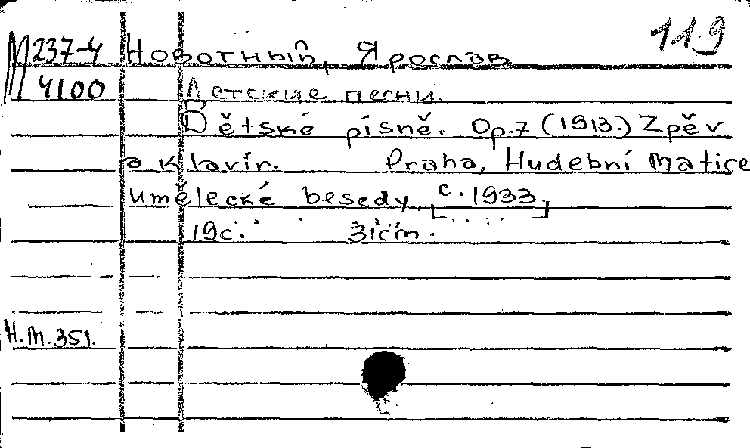 119
М 237-4 Новотный, Ярослав
4100 Детские песни.
Dětské písně. Op.7 (1913.) Zpěv
a klavír. Praha, Hudební Matice
umělecké besedy, [c. 1933.]
19с. 31см.
H.M.351.